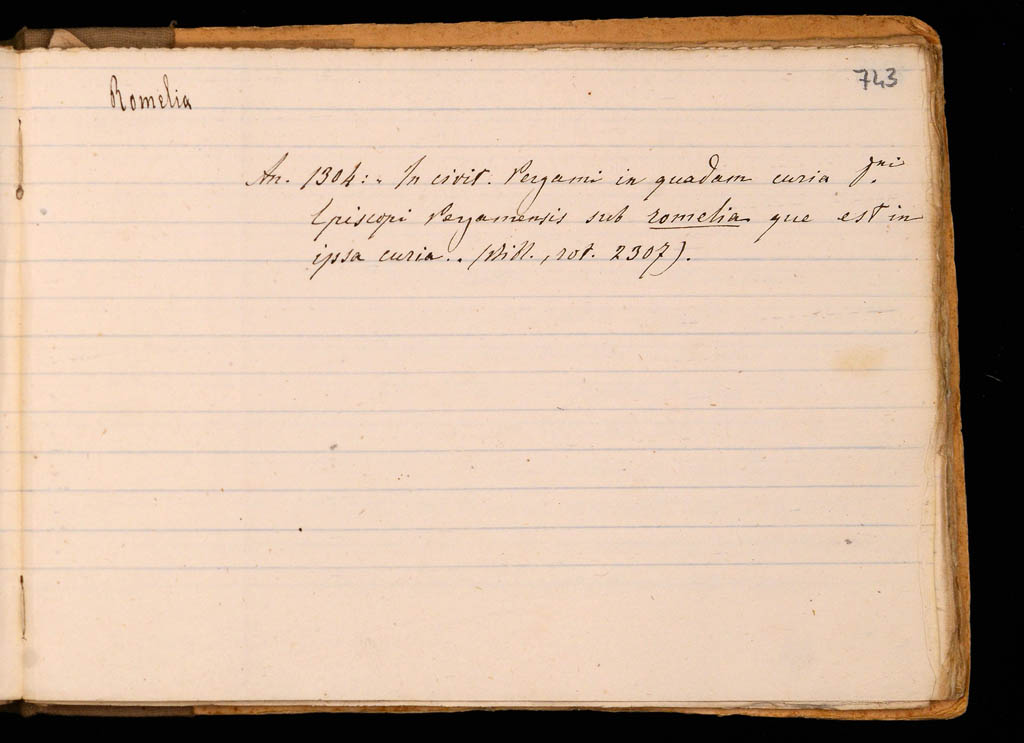 743
Romelia
An. 1304:. In civit. Pergami in quadam curia Dni.
Episcopi Pergamensis sub romelia que est in
ipsa curia.. (Bibl., rot. 2307).